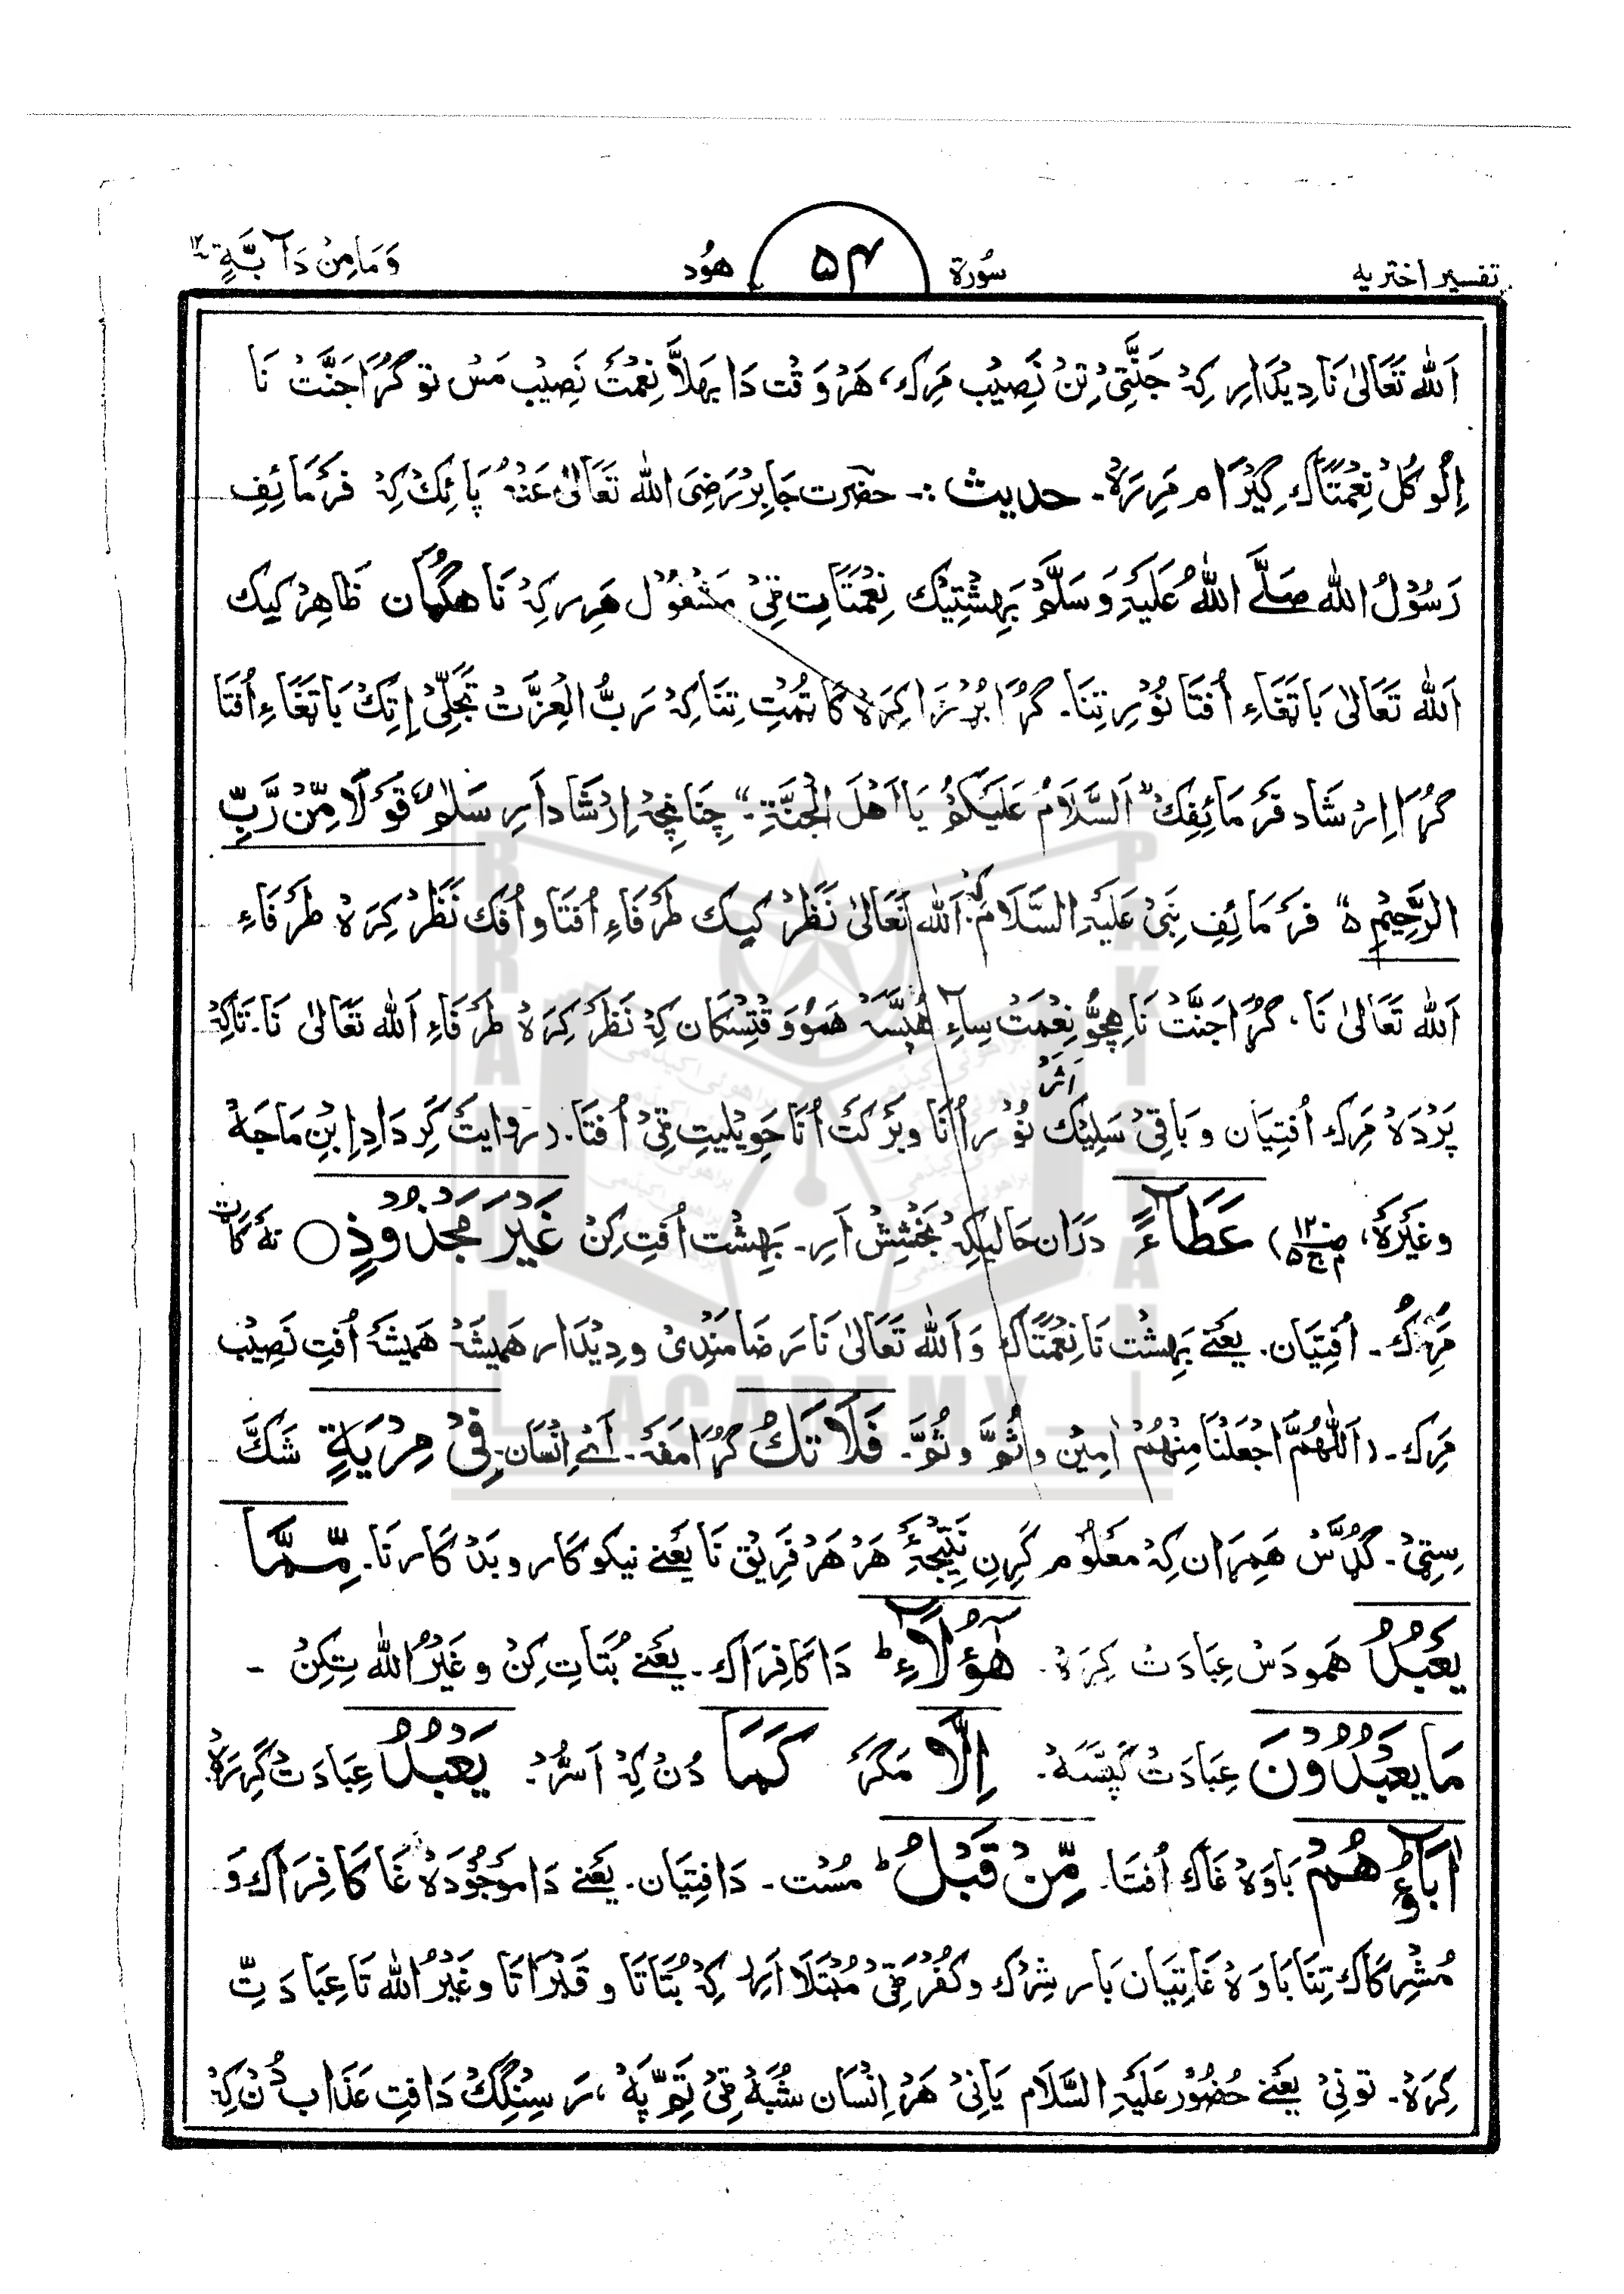 تفسیر اختریه سُورة ۵۴ هُود وَمَا مِنْ دَآبَّةٍ ۱۲
اَللّٰه تَعَالیٰ نَا دِیْدَارِ کِہْ جَنَّتِیْ تِنْ نَصِیْب مَرِک، هَرْوَقْت دَا بَهلَّا نِعْمَتْ نَصِیْب مَسْ تو گُرَا جَنَّتْ نَا
اِلُّو کُلْ نِعْمَتَاک گِیْرَام مَرِرَہْ۔ حدیث :۔ حضرت جَابِرْ رَضِیَ اللّٰه تَعَالیٰ عَنْهُ پَائِکْ کِہْ فَرْمَائِفِ
رَسُوْلُ اللّٰه صَلَّے اللّٰهُ عَلَیْهِ وَسَلَّمْ بَهِشْتِیْک نِعْمَتَاتِ ٹِیْ مَشْغُوْل مَرِر کِہْ نَا هگُمَان ظَاهِرْ کیِک
اَللّٰه تَعَالیٰ بَاتَغَاءِ اُفْتَا نُوْرِ تِنَا۔ گُرَا بُرْزَا کِرَہْ کَاتُمْتِ تِنَا کِہْ رَبُّ الْعِزَّتْ تَجَلِّیْ اِتِکْ بَاتَغَاءِ اُفْتَا
گُرَا اِرْشَاد فَرْمَائِفِکْ "اَلسَّلَامُ عَلَیْکُمْ یَا اَهْلَ الْجَنَّةِ۔" چِنَانْچِہْ اِرْشَاد اَرِ سَلٰمٌ قف قَوْلًا مِّنْ رَّبٍّ
الرَّحِیْمِ ه" فَرْمَائِفِ نَبِیْ عَلَیْهِ السَّلَام کِہْ: اَللّٰه تَعَالیٰ نَظَرْ کیِک طَرْفَاءِ اُفْتَا و اُفْک نَظَرْ کِرَہْ طَرْفَاءِ
اَللّٰه تَعَالیٰ نَا، گُرَا جَنَّتْ نَا هِچُّو نِعْمَتْ سِاءِ هُپَسَّہْ هَمُو وَقْتِسْکَان کِہْ نَظَرْ کِرَہْ طَرْفَاءِ اَللّٰه تَعَالیٰ نَا۔ تَاکِہْ
پَرْدَہْ مَرِک اُفْتِیَان و بَاقِیْ سَلِیْک نُوْر اَثَرْ اُنَا و بَرْکَتْ اُنَا حَوِیْلیِتِ ٹِیْ اُفْتَا۔ (رِوایتْ کَرِ دَادِ اِبْنِ مَاجَهْ
وغَیْرَہْ، م ج۵) عَطَآءً دَرَان حَالیِکِہْ بَخْشِشْ اَرِ۔ بَهِشْت اُفْتِ کِنْ غَیْرَ مَجْذُوْذٍ ○ نَہْ کَات
مَرِک۔ اُفْتِیَان۔ یَعْنے بَهِشْت نَا نِعْمَتَاک وَاللّٰه تَعَالیٰ نَا رَضَامَنْدِیْ و دِیْدَار هَمِیْشَہْ هَمِیْشَہْ اُفْتِ نَصِیْب
مَرِک۔ (اَللّٰهُمَّ اجْعَلْنَا مِنْهُمْ اٰمِیْن و ثُمَّ و ثُمَّ۔ فَلَا تَكُ گُرَا مَفَہْ۔ اَےْ اِنْسَان۔ فِیْ مِرْیَةٍ شَكَّ
سِتِیْ۔ گُڈَّسْ هَمِرَان کِہْ مَعْلُوْم کَرِن نَتِیْجَہْ هَرْ هَرْ فَرِیْق نَا یَعْنے نیِکو کَار و بَدْ کَار نَا۔ مِّمَّا
یَعْبُدُ هَمودَسْ عِبَادَتْ کِرَہْ۔ هٰٓؤُلَآءِ ط دَا کَافِرَاک۔ یَعْنے بُتَاتِ کِنْ و غَیْرُاللّٰه تِکِنْ ۔
مَا یَعْبُدُوْنَ عِبَادَتْ کَپَسَّہْ۔ اِلَّا مَگَرْ کَمَا دُنْ کِہْ اَسُّرْ۔ یَعْبُدُ عِبَادَتْ کَرِرَہْ
اٰبَآؤُهُمْ بَاوَہْ غَاک اُفْتَا۔ مِّنْ قَبْلُ ط مُسْت۔ دَافْتِیَان۔ یَعْنے دَا مَوْجُوْدَہْ غَا کَافِرَاک وَ
مُشْرِکَاک تِنَا بَاوَہْ غَاتِیَان بَار شِرْک و کُفْر ٹِیْ مُبْتَلَا اَرِر کِہْ بُتَاتَا و قَبْرَاتَا و غَیْرُاللّٰه تَا عِبَادَتِّ
کِرَہْ۔ تو نِیْ یَعْنے حُضُوْر عَلَیْهِ السَّلَام یَا نِیْ هَرْ اِنْسَان شُبَہْ ٹِیْ تَمَّپَہْ، رَسِنْگِکْ دَافْتِ عَذَاب دُنْ کِہْ
BRAHUI ACADEMY PAKISTAN